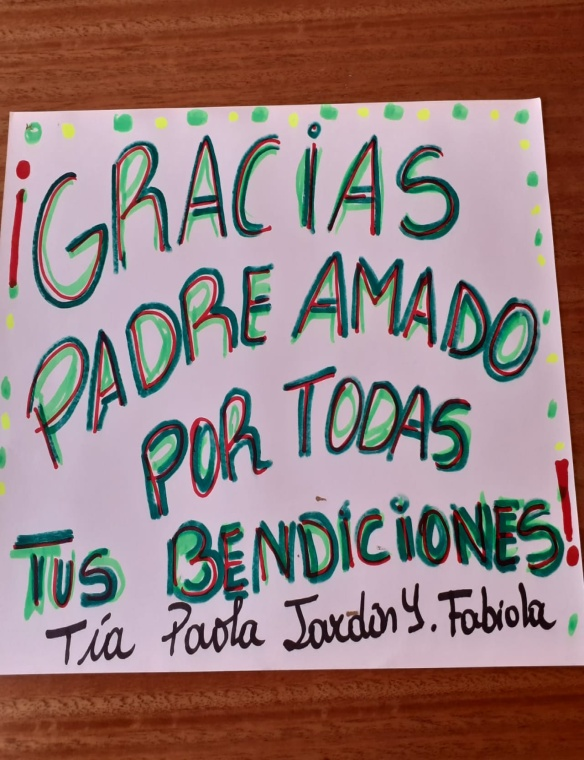 ¡GRACIAS
PADRE AMADO
POR TODAS
TUS BENDICIONES!
Tía Paola Jardín Y. Fabiola